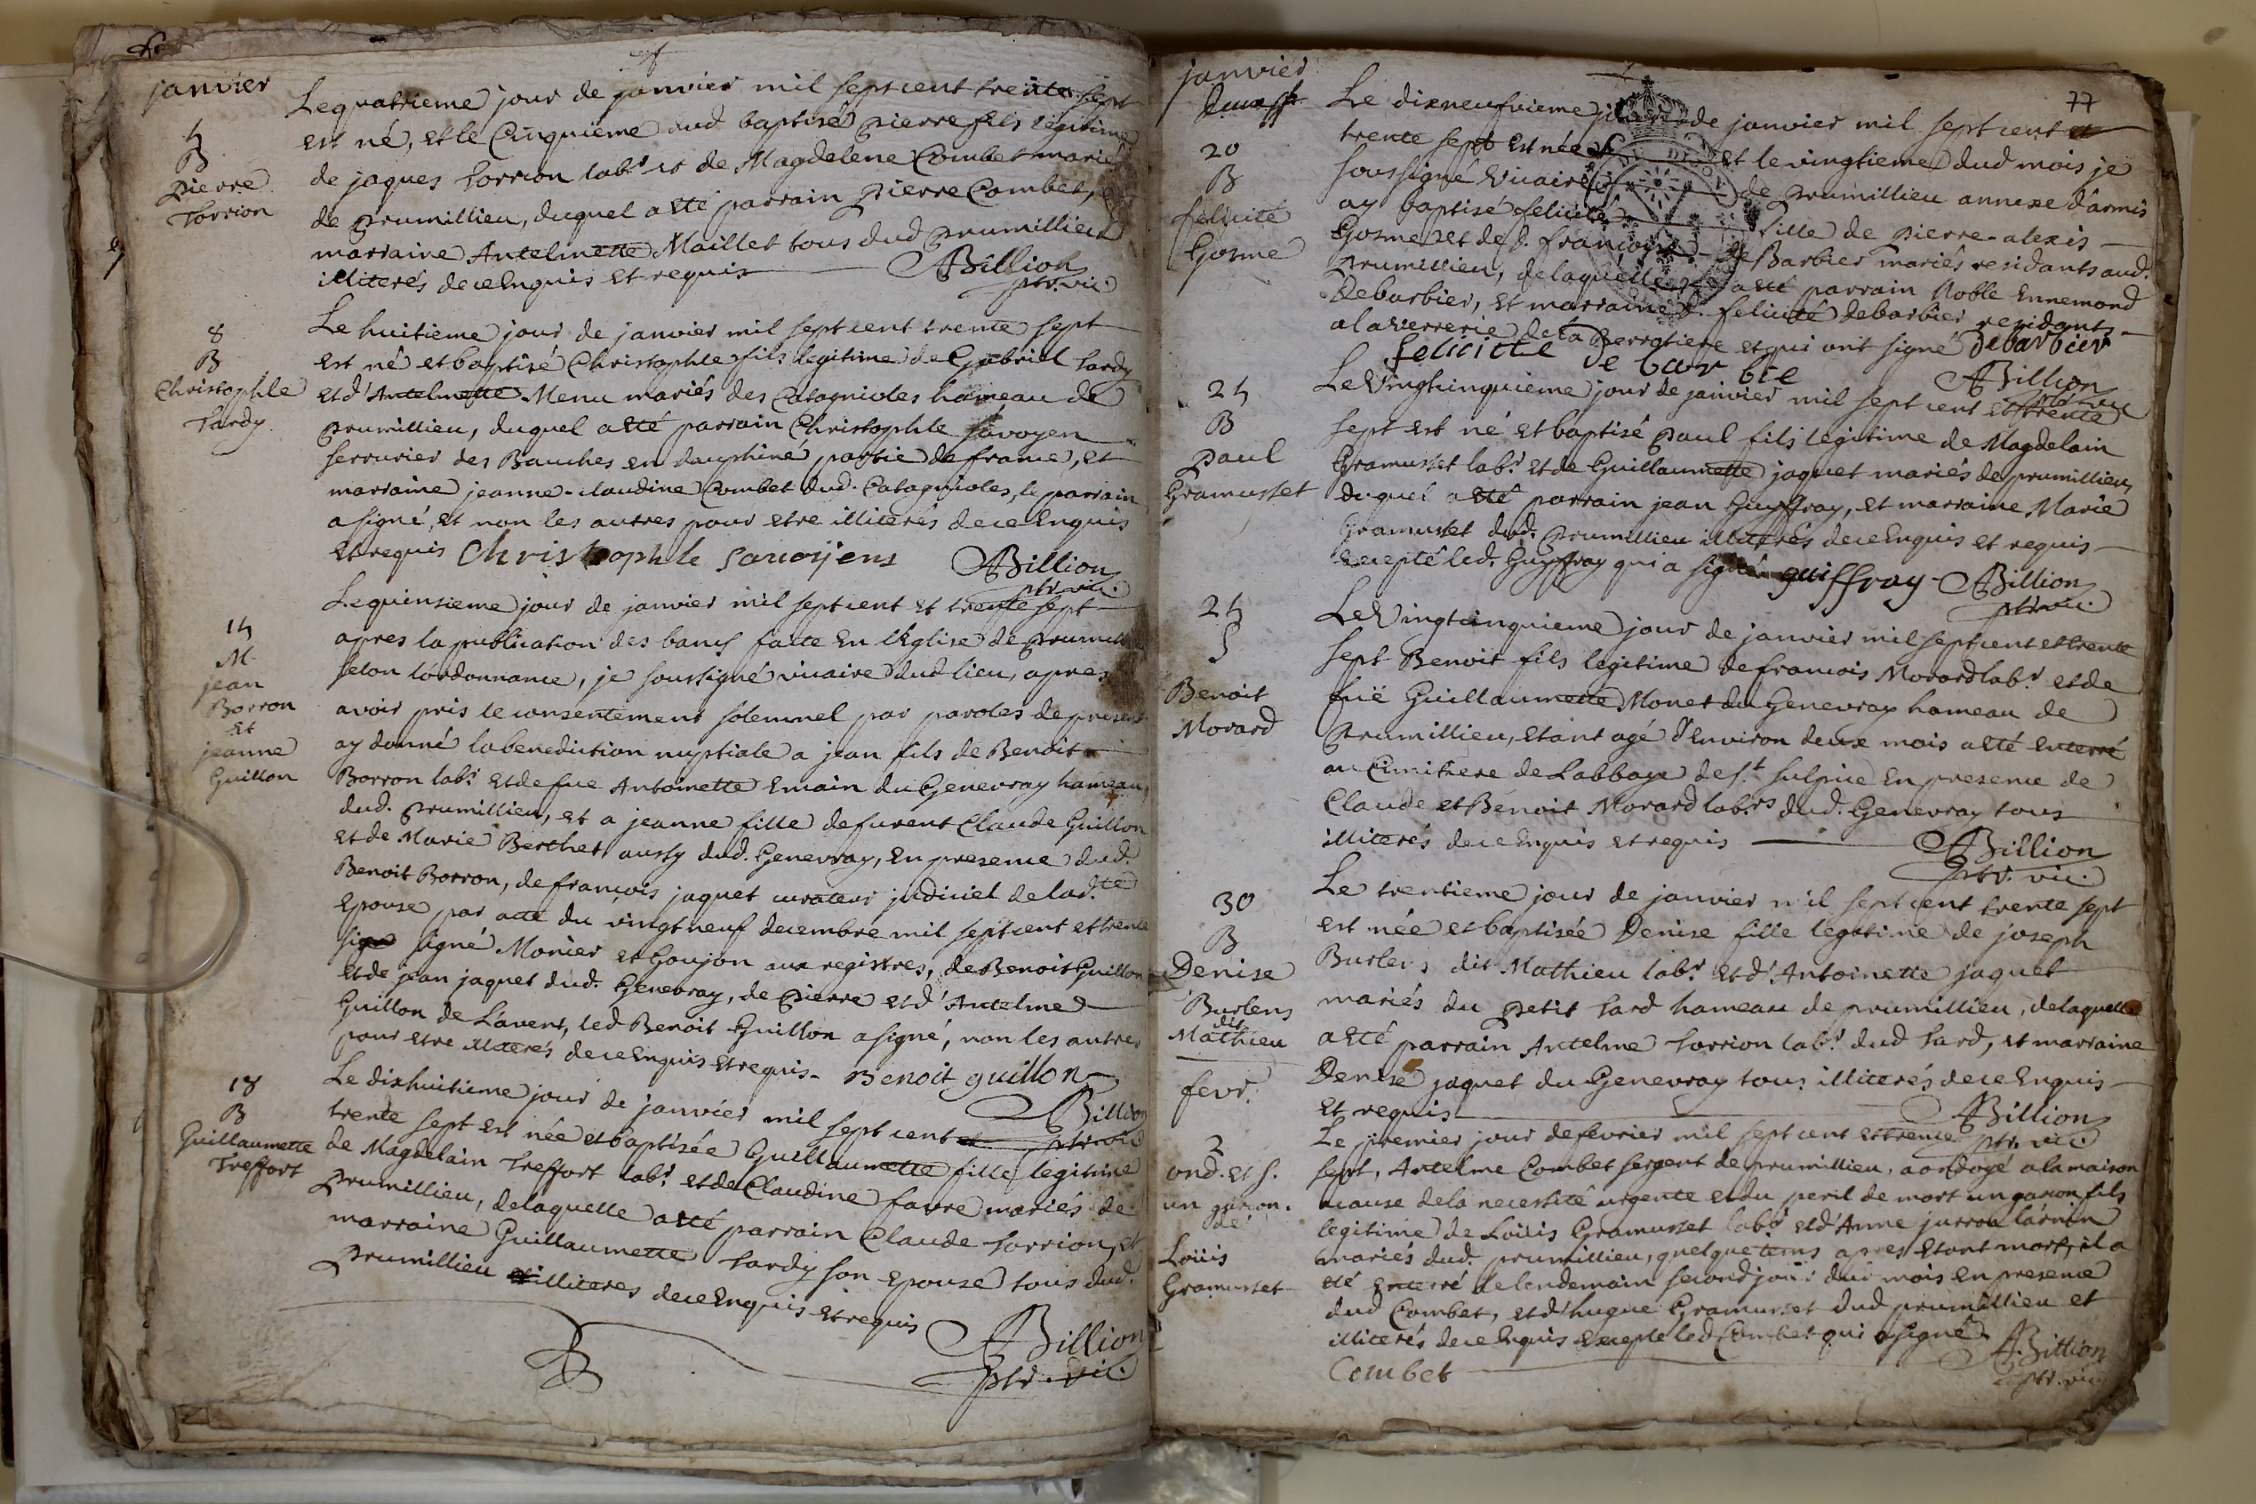 janvier
Le quatrieme jour de janvier mil sept cent trente sept
est né, et le Cinquieme dud baptisé pierre fils legitime
5
B
pierre
Torrion
de jaques Torrion lab.r et de Magdelene Combet mariés
de prumillieu, duquel a eté parrain pierre Combet, et
marraine Antelmette Maillet tous dud prumillieu
illiterés de ce Enquis et requis
Billion
ptr. vic.
8
B
Christophle
Tardy
Le huitieme jour de janvier mil sept cent trente sept
est né et baptisé Christophle fils legitime de Gabriel Tardy
et d'Antelmette Menu mariés des Catagnioles hameau de
prumillieu, duquel a eté parrain Christophle Savoyen
serrurier des Bauches en dauphiné partie de france, et
marraine jeanne-claudine Combet dud. Catagnioles, le parrain
a signé, et non les autres pour etre illiterés de ce Enquis
et requis Christophle Savoyens
Billion
ptr. vic.
15
M.
jean
Borron
Et
jeanne
Guillon
Le quinsieme jour de janvier mil sept cent et trente sept
apres la publication des bancs faite En l'Eglise de
selon l'ordonnance, je soussigné vicaire dud lieu, apres
avoir pris le consentement solemnel par paroles de present
ay donné la benediction nuptiale a jean fils de Benoit
Borron lab.r et de fue Antoinette Emain du Genevray hameau
dud. prumillieu, et a jeanne fille de furent Claude Guillon
et de Marie Berthet aussy dud. Genevray, en presence dud.
Benoit Borron, de francois jaquet curateur judiciel de lad.te
Epouse par acte du vingt neuf decembre mil sept cent et trente
signé Monier et Goujon aux registres, de Benoit Guillon
et de jean jaquet dud. Genevray, de pierre et d'Antelme
Guillon de Lavent, led Benoit Guillon a signé, non les autres
pour etre illiterés de ce Enquis et requis. Benoit guillon
Billion
ptr vic
18
B
Guillaumette
Treffort
Le dixhuitieme jour de janvier mil sept cent et
trente sept est née et baptisée Guillaumette fille legitime
de Magdelain Treffort lab.r et de Claudine favre mariés de
prumillieu, de laquelle a eté parrain Claude Torrion, et
marraine Guillaumette Tardy son Epouse tous dud.
prumillieu illiteres de ce Enquis et requis
Billion
ptr. vic.
77
janvier
20
B
felicité
Gosme
Le dixneufvieme jour de janvier mil sept cent et
trente sept est née et le vingtieme dud mois je
soussigné vicaire de prumillieu annexe d'armis
ay baptisé felicité fille de pierre-alexis
Gosme et de d. francoise de Barbier mariés residants aud.
prumillieu, de laquelle a eté parrain Noble Ennemond
Debarbier, et marraine d. felicité debarbier residants
a la verrerie de la Perrotiere et qui ont signé Debarbier
felicitte De barbie
Billion
ptr vic
25
B
Paul
Gramusset
Le Vingtcinquieme jour de janvier mil sept cent et trente
sept est né et baptisé Paul fils legitime de Magdelain
Gramusset lab.r et de Guillaumette jaquet mariés de prumillieu,
duquel a eté parrain jean Guyffray, et marraine Marie
Gramusset dud. prumillieu illiterés de ce Enquis et requis
Excepté led. Guyffray qui a signé guiffray
Billion
ptr. vic.
25
S
Benoit
Morard
Le Vingtcinquieme jour de janvier mil sept cent et trente
sept Benoit fils legitime de francois Morard lab.r et de
fuë Guillaumette Monet du Genevray hameau de
Prumillieu, etant agé d'Environ deux mois a eté enterré
au Cimitiere de Labbaye de S.t Sulpice En presence de
Claude et Benoit Morard lab.rs dud. Genevray tous
illiterés de ce Enquis et requis
Billion
ptr. vic.
30
B
Denise
Burlens
dit
Mathieu
Le trentieme jour de janvier mil sept cent trente sept
est née et baptisée Denise fille legitime de joseph
Burlens dit Mathieu lab.r et d'Antoinette jaquet
mariés du petit Tard hameau de prumillieu, de laquelle
a eté parrain Antelme Torrion lab.r dud Tard, et marraine
Denise jaquet du Genevray tous illiterés de ce Enquis
et requis
Billion
ptr. vic.
fevr.
2
ond. et S.
un garcon.
de
Loüis
Gramusset
Le premier jour de fevrier mil sept cent et trente
sept, Antelme Combet sergent de prumillieu, a ondoyé a la maison
a cause de la necessité urgente et du peril de mort un garcon fils
legitime de Loüis Gramusset lab.r et d'Anne
mariés dud. prumillieu, quelque tems apres etant mort, il a
eté enterré le lendemain second jour dud mois en presence
dud Combet, et d'hugue Gramusset dud prumillieu et
illiterés de ce Enquis excepté led Combet qui a signé
Combet
Billion
ptr. vic